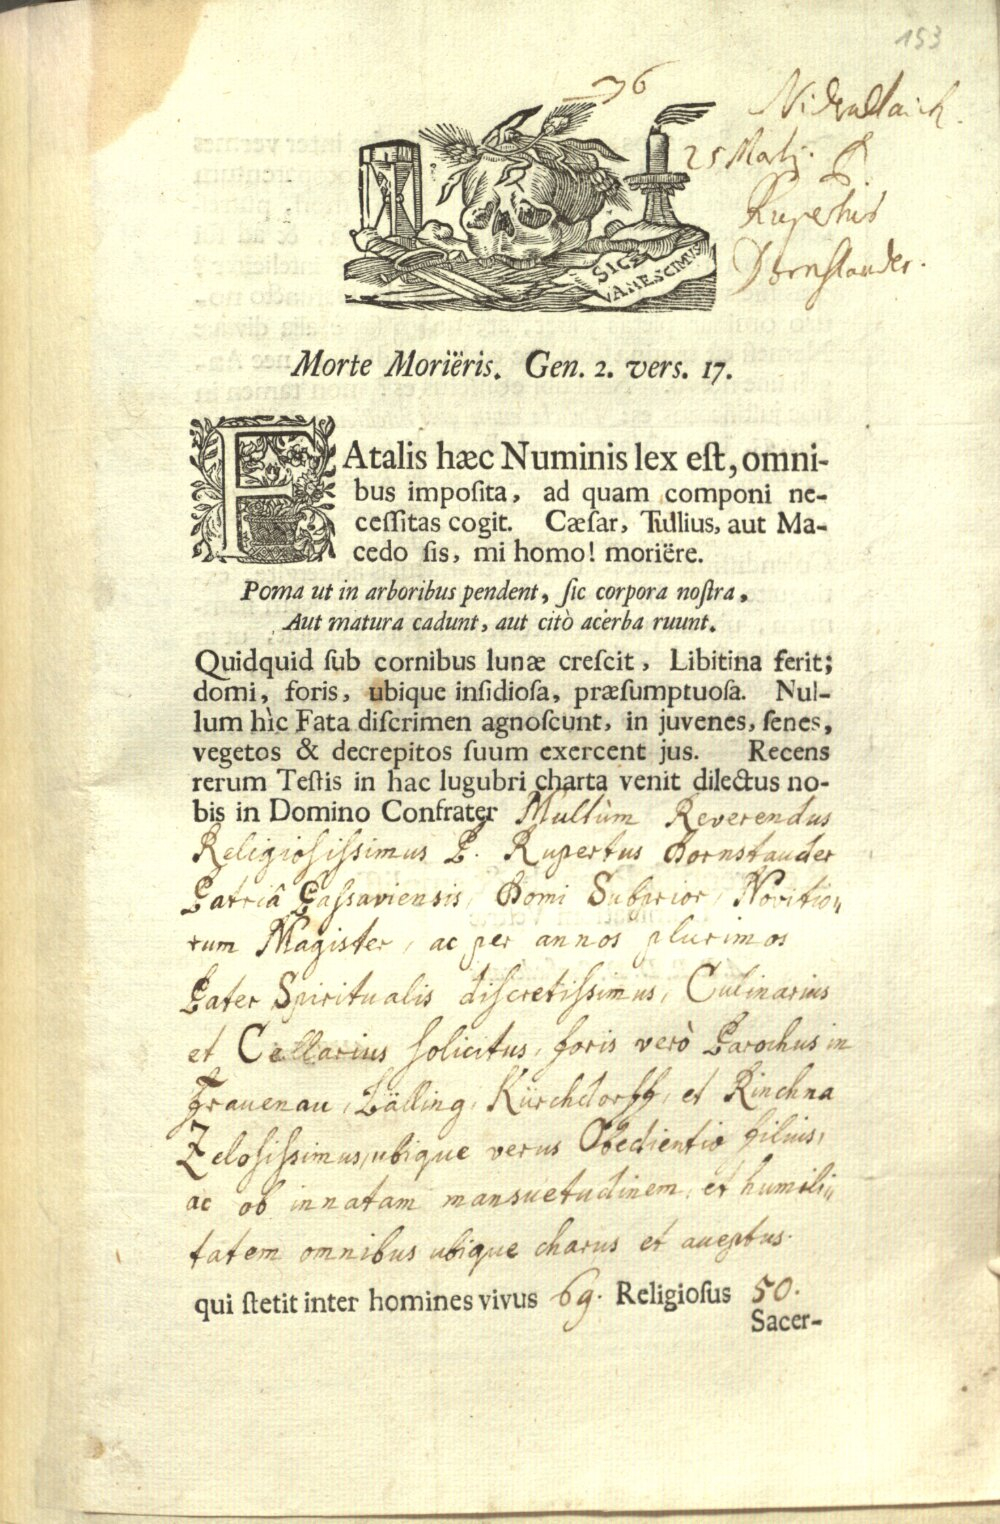 153
76
Nideraltaich.
25 Martij. P.
Rupertus
Dornstauder.
SIC E-
VANESCIMUS
Morte Moriëris. Gen. 2. vers. 17.
FAtalis hæc Numinis lex eſt, omni-
bus impoſita, ad quam componi ne-
ceſſitas cogit. Cæſar, Tullius, aut Ma-
cedo ſis, mi homo! moriëre.
Poma ut in arboribus pendent, ſic corpora noſtra,
Aut matura cadunt, aut citò acerba ruunt.
Quidquid ſub cornibus lunæ creſcit, Libitina ferit;
domi, foris, ubique inſidioſa, præſumptuoſa. Nul-
lum hìc Fata diſcrimen agnoſcunt, in juvenes, ſenes,
vegetos & decrepitos ſuum exercent jus. Recens
rerum Teſtis in hac lugubri charta venit dilectus no-
bis in Domino Confrater Multùm Reverendus
Religiosissimus P. Rupertus Dornstauder
Patriâ Passaviensis, Domi Subprior, Novitio„
rum Magister, ac per annos plurimos
Pater Spiritualis discretissimus, Culinarius
et Cellarius solicitus, foris verò Parochus in
Frauenau, Lälling, Kürchdorff, et Rinchna
Zelosissimus, ubique verus Obedientiæ filius,
ac ob innatam mansuetudinem, et humili„
tatem omnibus ubique charus et acceptus.
qui ſtetit inter homines vivus 69. Religioſus 50.
Sacer-